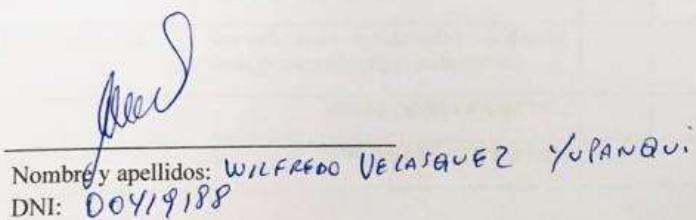 Nombre y apellidos: WILFREDO VELASQUEZ YUPANQUI
DNI: 00419188